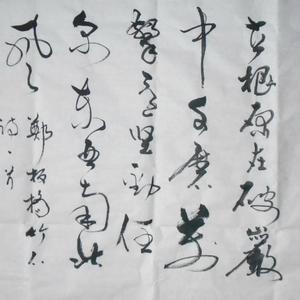 立根原在破巖
中千磨萬
擊还坚勁任
尔东西南北
风
鄭板橋竹石
诗一首